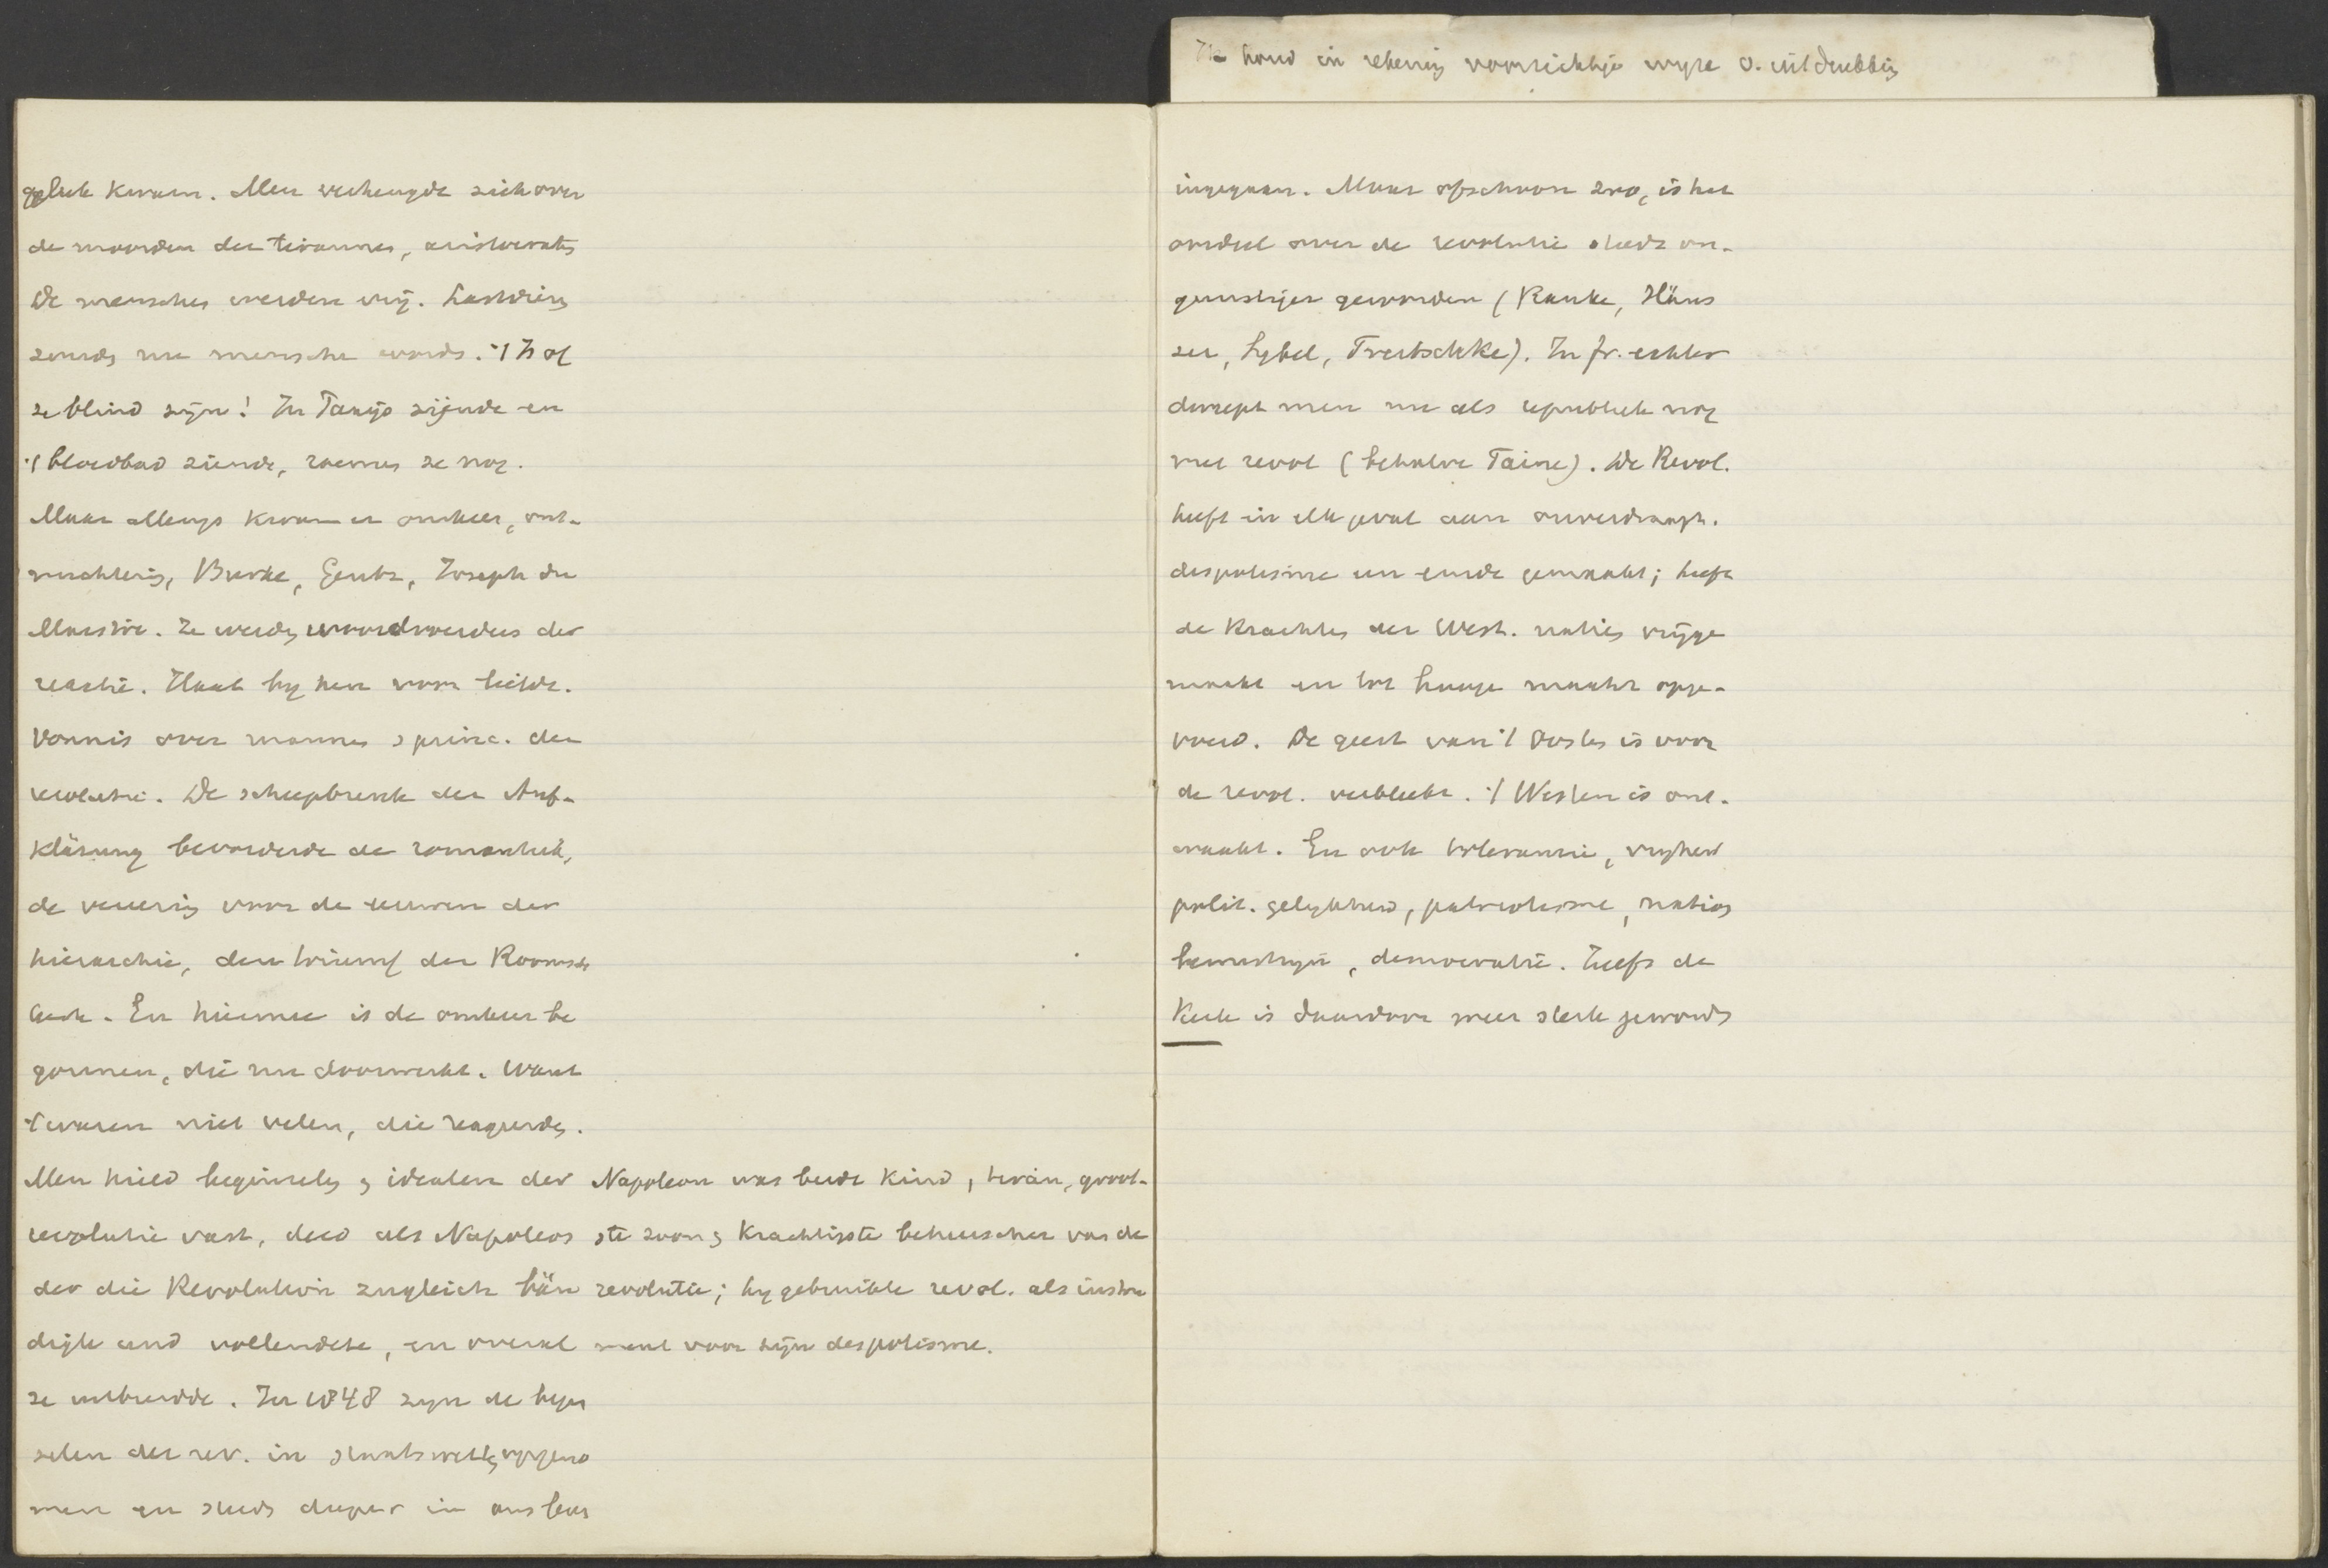 Ik houd in rekening voorzichtige wyze v. uitdrukking
geluk kwam. Men verheugde zich over
de moorden der tirannen, aristocraten
De menschen werden vrij. Lastdieren
zouden nu mensche worden. 't Zal
ze blind zijn! In Parijs zijnde en
't bloedbad ziende, roemen ze nog.
Maar allengs kwam er omkeer, ont-
nuchtering, Burke, Gentz, Joseph de
Maistre. Ze werden woordvoerders der
reactie. Haat by hen voor liefde.
Vonnis over mannen & princ. der
revolutie. De schipbreuk der Auf-
klärung bevorderde de romantiek,
de veneering voor de eeuwen der
hierarchie, den triumf der Roomsche
Kerk. En hiermee is de omkeer be
gonnen, die nu doorwerkt. Want
't waren niet velen, die reageerden.
Men hield beginselen & idealen der
revolutie vast, deed als Napoleon
der die Revolution zugleich bän
digte und vollendete, en overal
ze uitbreidde. In 1848 zyn de begin
selen der rev. in staatswetten opgeno
men en steeds dieper in ons bew.
Napoleon was beide kind, tiran, groot-
ste zoon & krachtigste beheerscher van de
revolutie; hy gebruikte revol. als instru
ment voor zijn despotisme.
ingegaan. Maar ofschoon zoo, is het
oordeel over de revolutie steeds on-
gunstiger geworden (Ranke, Häus
ser, Sybel, Treitschke). In Fr. echter
dweept men nu als republiek nog
met revol (behalve Taine). De Revol.
heeft in elk geval aan onverdraagl.
despotisme een einde gemaakt; heeft
de krachten der West. naties vrijge
maakt en tot hooge macht opge-
voed. De geest van 't Oosten is voor
de revol. verbleekt. 't Westen is ont-
waakt. En ook tolerantie, vryheid
polit. gelykheid, patriotisme, nation
bewustzyn, democratie. Zelfs de
Kerk is daardoor meer sterk geworden